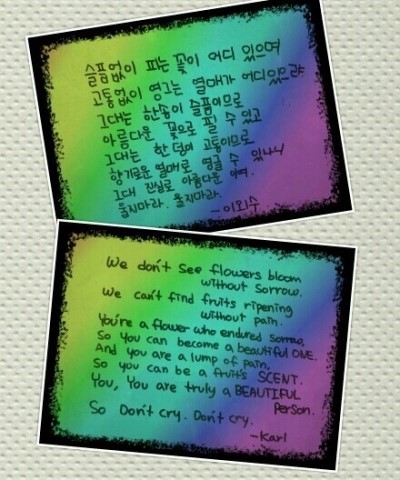 슬픔없이 피는 꽃이 어디 있으며
고통없이 영그는 열매가 어디있으랴
그대는 한송이 슬픔이므로
아름다운 꽃으로 필 수 있고
그대는 한 덩이 고통이므로
향기로운 열매로 영글 수 있나니
그대 진실로 아름다운 이여.
울지마라. 울지마라.
- 이외수
We don't see flowers bloom
without sorrow.
We can't find fruits ripening
without pain.
You're a flower who endured sorrow,
So you can become a beautiful ONE.
And you are a lump of pain,
So you can be a fruit's SCENT.
You, You are truly a BEAUTIFUL
Person.
So Don't cry. Don't cry.
-Karl